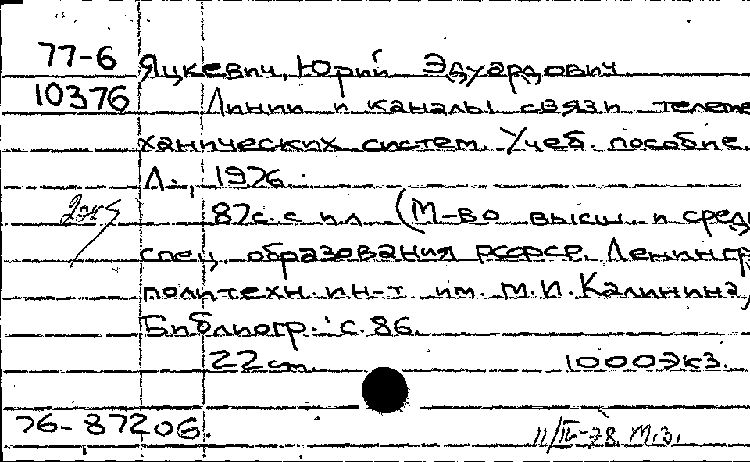 77-6 Яцкевич, Юрий Эдуардович
10376 Линии и каналы связи телеме
ханических систем. Учеб. пособие.
Л., 1976.
87с. с ил. (М-во высш. и сред.
спец. образования РСФСР. Ленингр.
политехн. ин-т им. М.И. Калинина)
Библиогр.: с. 86.
22 см. 1000 экз.
76-87206.
11/IV-78 М.З.